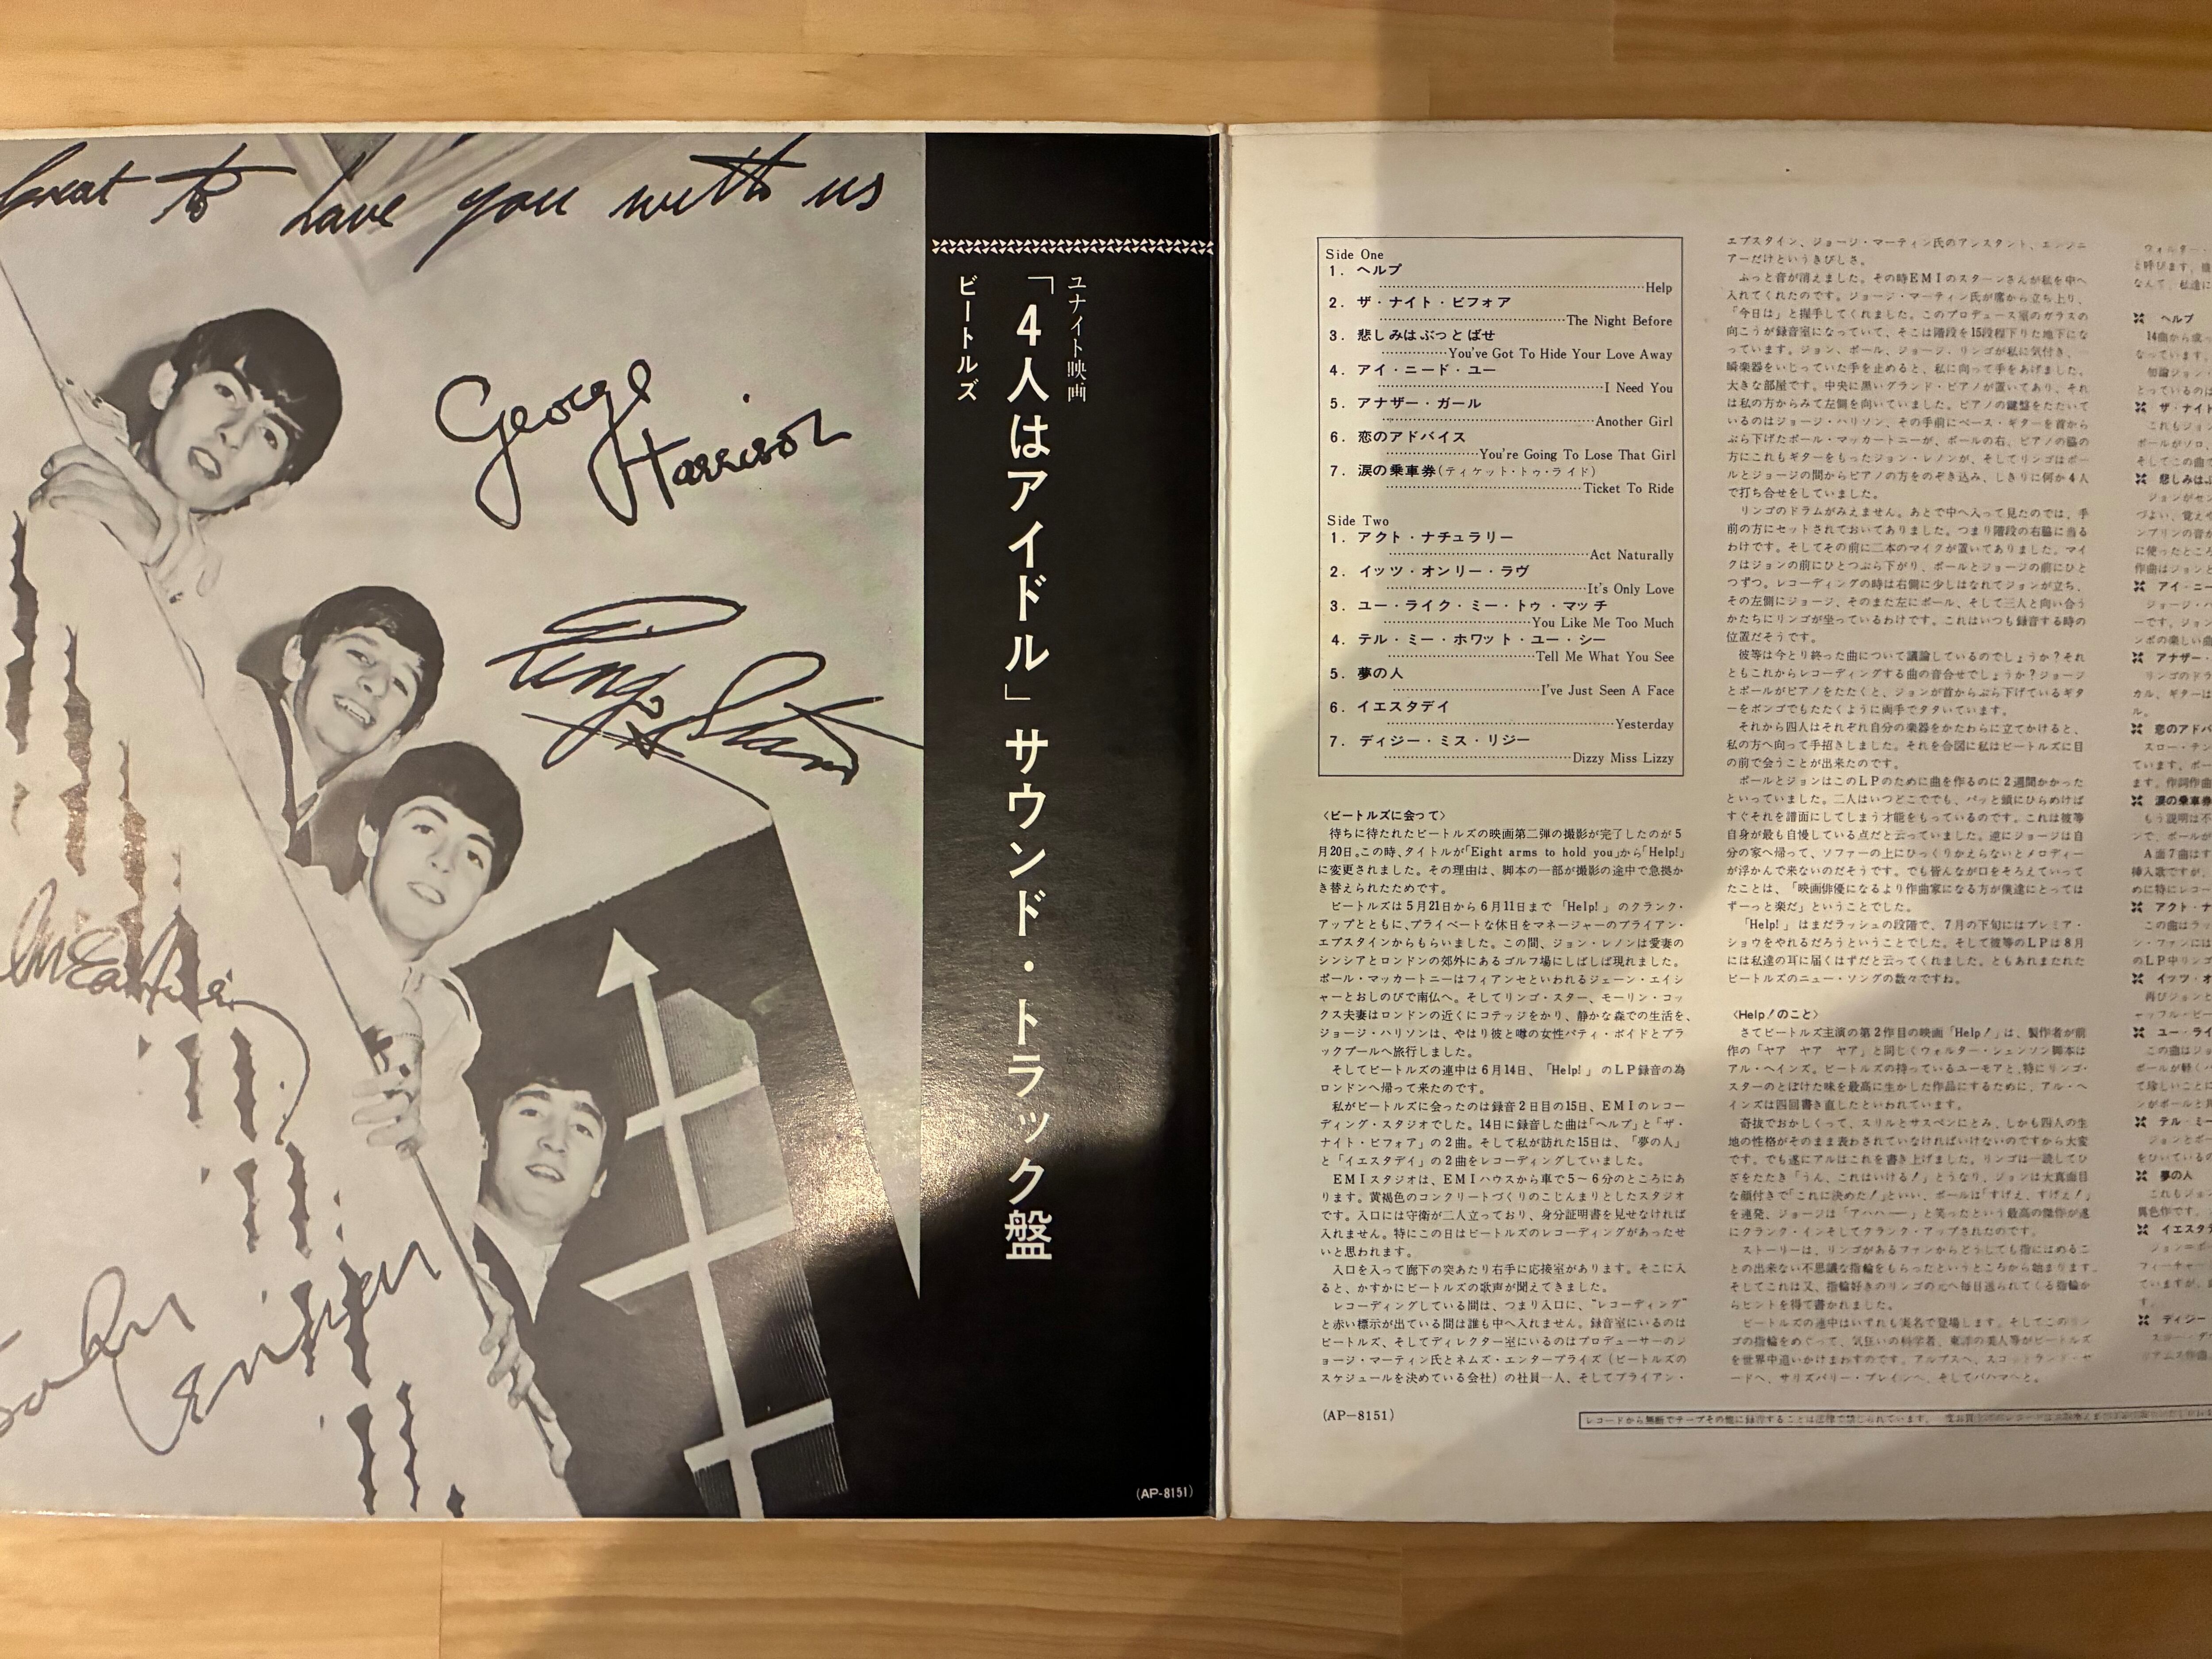 Great to have you with us
George
Harrison
Ringo Starr
McCartney
John
Lennon
ユナイト映画
「4人はアイドル」サウンド・トラック盤
ビートルズ
(AP-8151)
Side One
1. ヘルプ
Help
2. ザ・ナイト・ビフォア
The Night Before
3. 悲しみはぶっとばせ
You've Got To Hide Your Love Away
4. アイ・ニード・ユー
I Need You
5. アナザー・ガール
Another Girl
6. 恋のアドバイス
You're Going To Lose That Girl
7. 涙の乗車券(ティケット・トゥ・ライド)
Ticket To Ride
Side Two
1. アクト・ナチュラリー
Act Naturally
2. イッツ・オンリー・ラヴ
It's Only Love
3. ユー・ライク・ミー・トゥ・マッチ
You Like Me Too Much
4. テル・ミー・ホワット・ユー・シー
Tell Me What You See
5. 夢の人
I've Just Seen A Face
6. イエスタデイ
Yesterday
7. ディジー・ミス・リジー
Dizzy Miss Lizzy
〈ビートルズに会って〉
待ちに待たれたビートルズの映画第二弾の撮影が完了したのが5
月20日。この時、タイトルが「Eight arms to hold you」から「Help!」
に変更されました。その理由は、脚本の一部が撮影の途中で急拠か
き替えられたためです。
ビートルズは5月21日から6月11日まで「Help!」のクランク・
アップとともに、プライベートな休日をマネージャーのブライアン・
エプスタインからもらいました。この間、ジョン・レノンは愛妻の
シンシアとロンドンの郊外にあるゴルフ場にしばしば現れました。
ポール・マッカートニーはフィアンセといわれるジェーン・エイシ
ャーとおしのびで南仏へ。そしてリンゴ・スター、モーリン・コッ
クス夫妻はロンドンの近くにコテッジをかり、静かな森での生活を、
ジョージ・ハリソンは、やはり彼と噂の女性パティ・ボイドとブラ
ックプールへ旅行しました。
そしてビートルズの連中は6月14日、「Help!」のLP録音の為
ロンドンへ帰って来たのです。
私がビートルズに会ったのは録音2日目の15日、EMIのレコー
ディング・スタジオでした。14日に録音した曲は「ヘルプ」と「ザ・
ナイト・ビフォア」の2曲。そして私が訪れた15日は、「夢の人」
と「イエスタデイ」の2曲をレコーディングしていました。
EMIスタジオは、EMIハウスから車で5〜6分のところにあ
ります。黄褐色のコンクリートづくりのこじんまりとしたスタジオ
です。入口には守衛が二人立っており、身分証明書を見せなければ
入れません。特にこの日はビートルズのレコーディングがあったせ
いと思われます。
入口を入って廊下の突あたり右手に応接室があります。そこに入
ると、かすかにビートルズの歌声が聞えてきました。
レコーディングしている間は、つまり入口に、“レコーディング”
と赤い標示が出ている間は誰も中へ入れません。録音室にいるのは
ビートルズ、そしてディレクター室にいるのはプロデューサーのジ
ョージ・マーティン氏とネムズ・エンタープライズ(ビートルズの
スケジュールを決めている会社)の社員一人、そしてブライアン・
(AP-8151)
エプスタイン、ジョージ・マーティン氏のアシスタント、エンジニ
アーだけというきびしさ。
ふっと音が消えました。その時EMIのスターンさんが私を中へ
入れてくれたのです。ジョージ・マーティン氏が席から立ち上り、
「今日は」と握手してくれました。このプロデュース室のガラスの
向こうが録音室になっていて、そこは階段を15段程下りた地下にな
っています。ジョン、ポール、ジョージ、リンゴが私に気付き、
瞬楽器をいじっていた手を止めると、私に向って手をあげました。
大きな部屋です。中央に黒いグランド・ピアノが置いてあり、それ
は私の方からみて左側を向いていました。ピアノの鍵盤をたたいて
いるのはジョージ・ハリソン、その手前にベース・ギターを首から
ぶら下げたポール・マッカートニーが、ポールの右、ピアノの脇の
方にこれもギターをもったジョン・レノンが、そしてリンゴはポー
ルとジョージの間からピアノの方をのぞき込み、しきりに何か4人
で打ち合せをしていました。
リンゴのドラムがみえません。あとで中へ入って見たのでは、手
前の方にセットされておいてありました。つまり階段の右脇に当る
わけです。そしてその前に二本のマイクが置いてありました。マイ
クはジョンの前にひとつぶら下がり、ポールとジョージの前にひと
つずつ。レコーディングの時は右側に少しはなれてジョンが立ち、
その左側にジョージ、そのまた左にポール、そして三人と向い合う
かたちにリンゴが坐っているわけです。これはいつも録音する時の
位置だそうです。
彼等は今とり終った曲について議論しているのでしょうか?それ
ともこれからレコーディングする曲の音合せでしょうか?ジョージ
とポールがピアノをたたくと、ジョンが首からぶら下げているギタ
ーをボンゴでもたたくように両手でタタいています。
それから四人はそれぞれ自分の楽器をかたわらに立てかけると、
私の方へ向って手招きしました。それを合図に私はビートルズに目
の前で会うことが出来たのです。
ポールとジョンはこのLPのために曲を作るのに2週間かかった
といっていました。二人はいつどこででも、パッと頭にひらめけば
すぐそれを譜面にしてしまう才能をもっているのです。これは彼等
自身が最も自慢している点だと云っていました。逆にジョージは自
分の家へ帰って、ソファーの上にひっくりかえらないとメロディー
が浮かんで来ないのだそうです。でも皆んなが口をそろえていって
たことは、「映画俳優になるより作曲家になる方が僕達にとっては
ずーっと楽だ」ということでした。
「Help!」はまだラッシュの段階で、7月の下旬にはプレミア・
ショウをやれるだろうということでした。そして彼等のLPは8月
には私達の耳に届くはずだと云ってくれました。ともあれまたれた
ビートルズのニュー・ソングの数々ですね。
〈Help!のこと〉
さてビートルズ主演の第2作目の映画「Help!」は、製作者が前
作の「ヤア ヤア ヤア」と同じくウォルター・シェンソン脚本は
アル・ヘインズ。ビートルズの持っているユーモアと、特にリンゴ・
スターのとぼけた味を最高に生かした作品にするために、アル・ヘ
インズは四回書き直したといわれています。
奇抜でおかしくって、スリルとサスペンスにとみ、しかも四人の生
地の性格がそのまま表わされていなければいけないのですから大変
です。でも遂にアルはこれを書き上げました。リンゴは一読してひ
ざをたたき「うん、これはいける!」とうなり、ジョンは大真面目
な顔付きで「これに決めた!」といい、ポールは「すげえ、すげえ!」
を連発、ジョージは「アハハー」と笑ったという最高の傑作が遂
にクランク・インそしてクランク・アップされたのです。
ストーリーは、リンゴがあるファンからどうしても指にはめるこ
との出来ない不思議な指輪をもらったというところから始まります。
そしてこれは又、指輪好きのリンゴの元へ毎日送られてくる指輪か
らヒントを得て書かれました。
ビートルズの連中はいずれも実名で登場します。そしてこのリン
ゴの指輪をめぐって、気狂いの科学者、東洋の美人等がビートルズ
を世界中追いかけまわすのです。アルプスへ、スコットランド・ヤ
ードへ、サリスバリー・プレインへ、そしてバハマへと。
レコードから無断でテープその他に録音することは法律で禁じられています。
ヘルプ
ザ・ナイト
悲しみは
アイ・ニー
アナザー・
恋のアドバ
涙の乗車券
アクト・ナ
イッツ・オ
ユー・ライ
テル・ミー
夢の人
イエスタデ
ディジー